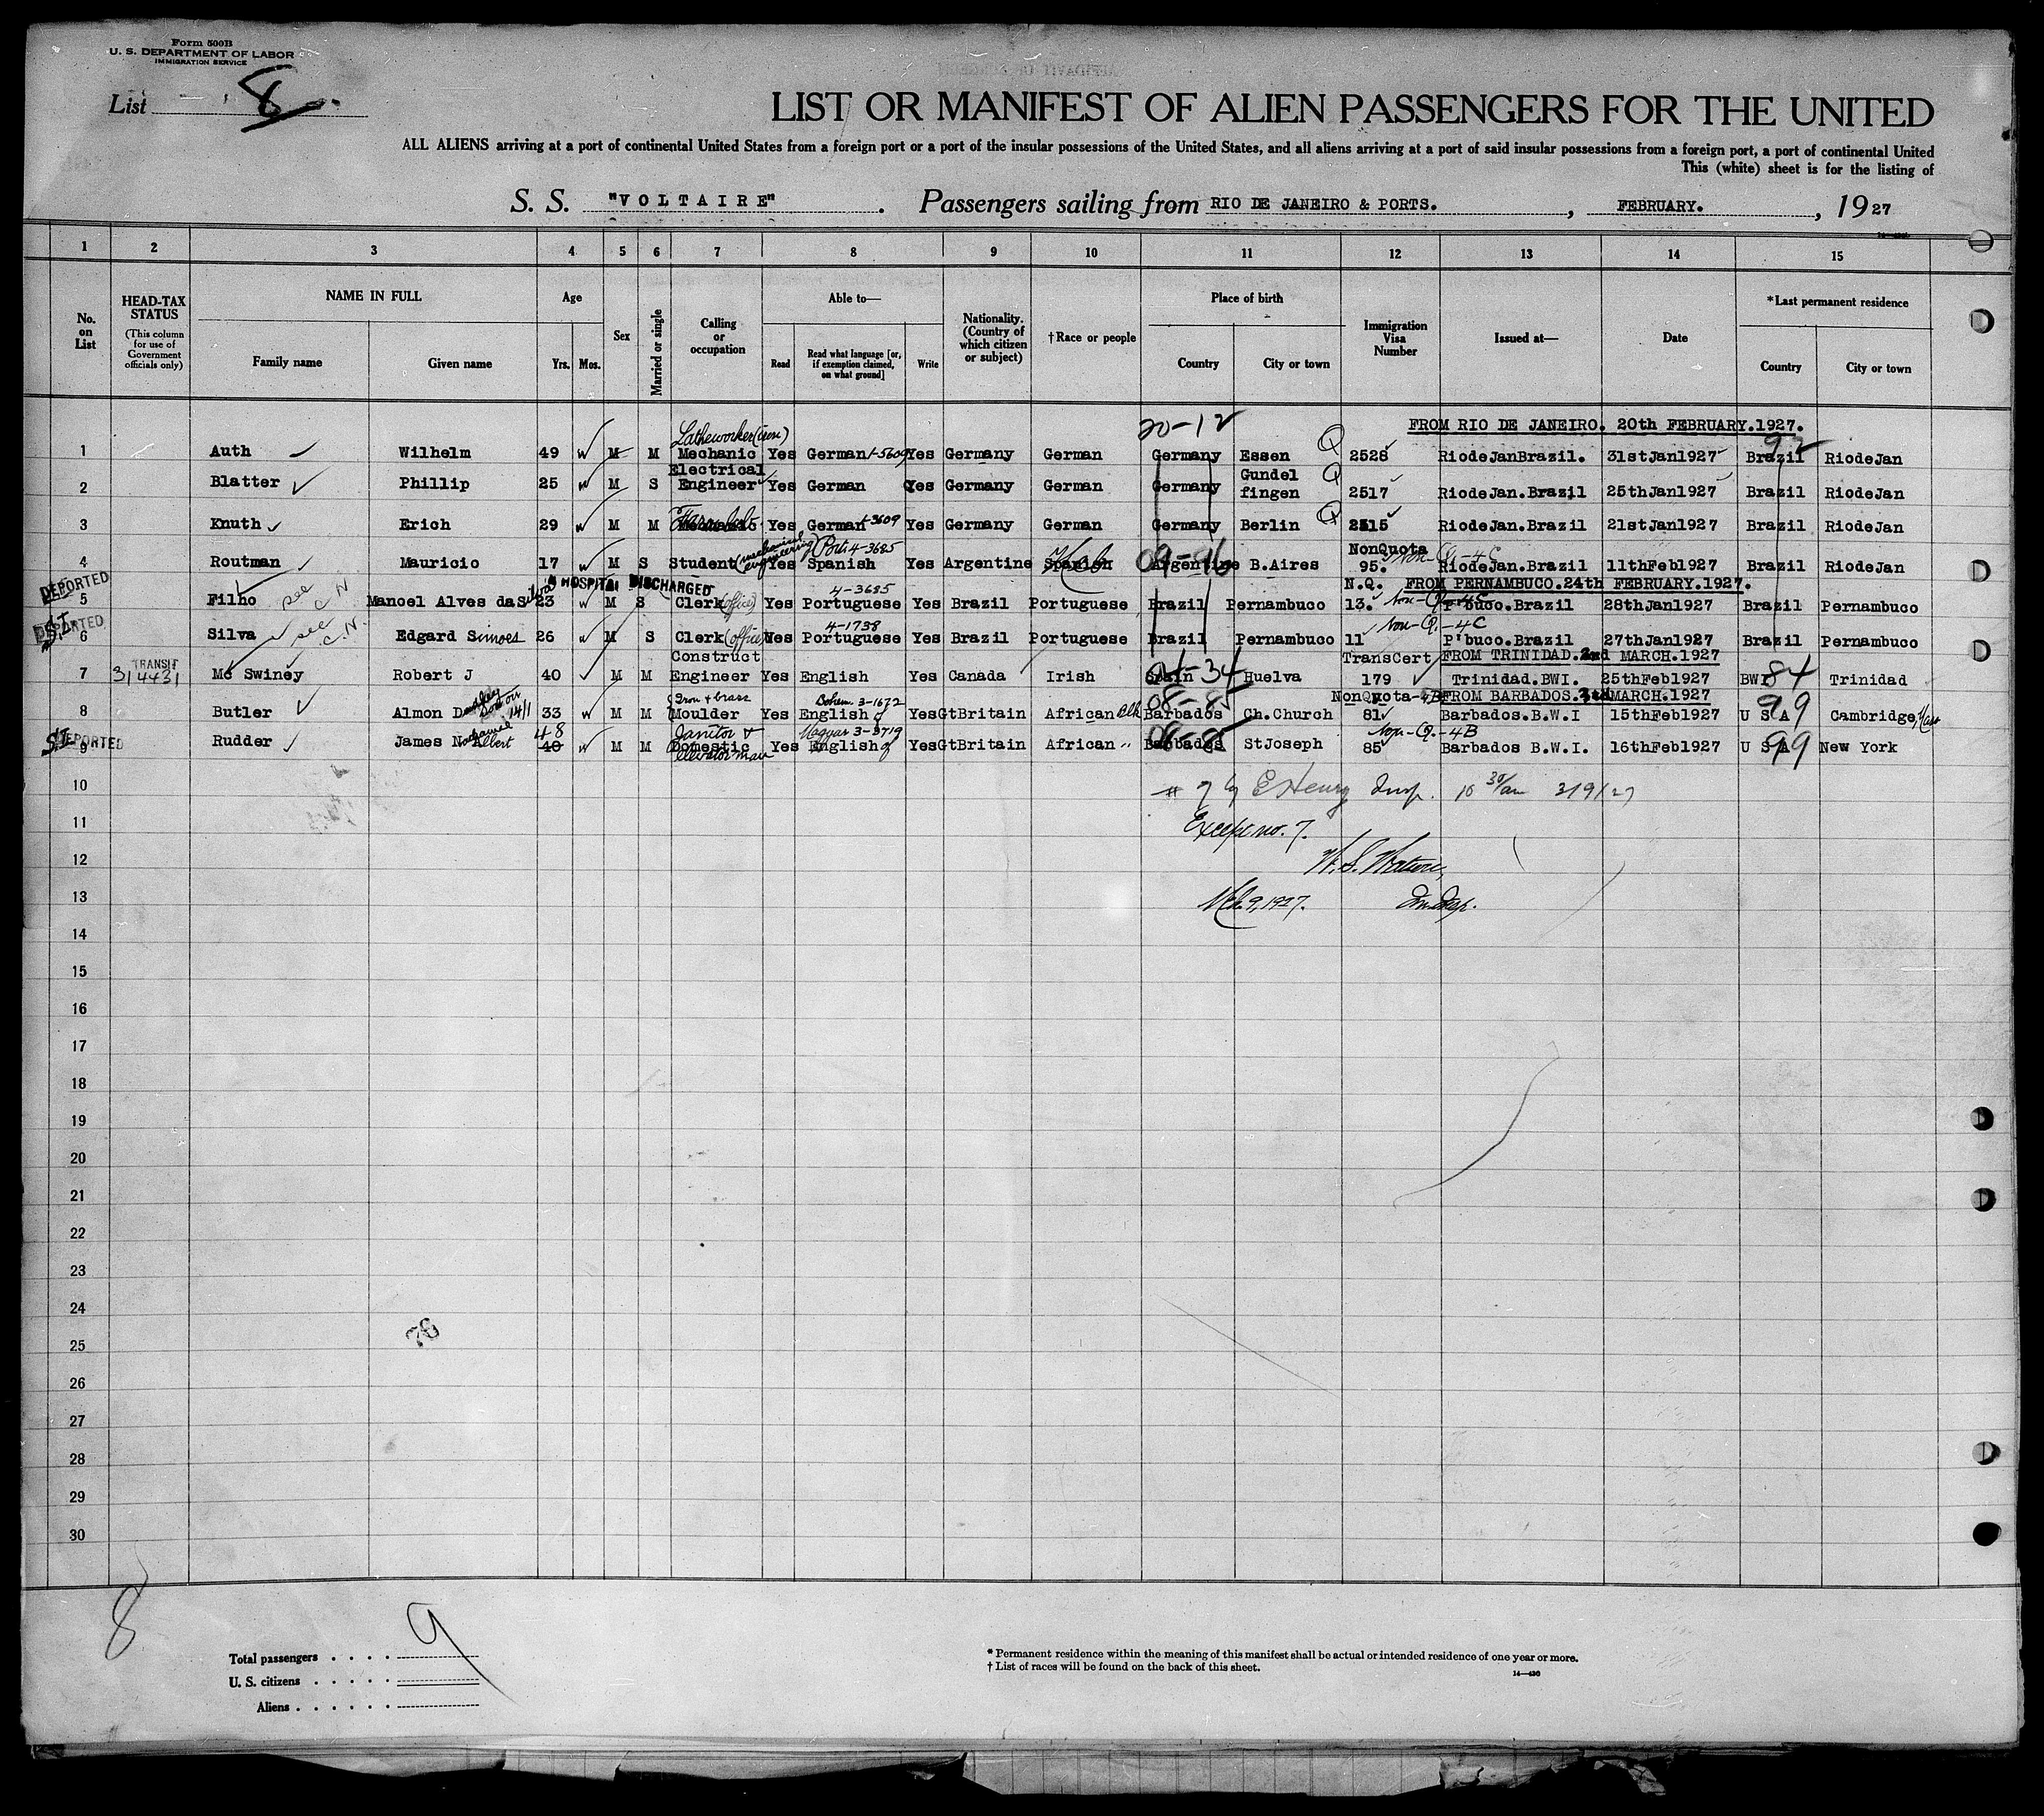 Form 500B
U. S. DEPARTMENT OF LABOR
IMMIGRATION SERVICE
List 8
LIST OR MANIFEST OF ALIEN PASSENGERS FOR THE UNITED
ALL ALIENS arriving at a port of continental United States from a foreign port or a port of the insular possessions of the United States, and all aliens arriving at a port of said insular possessions from a foreign port, a port of continental United
This (white) sheet is for the listing of
S. S. "VOLTAIRE" . Passengers sailing from RIO DE JANEIRO & PORTS. , FEBRUARY. , 1927
1 2 3 4 5 6 7 8 9 10 11 12 13 14 15
No. on List
HEAD-TAX STATUS (This column for use of Government officials only)
NAME IN FULL
Family name
Given name
Age
Yrs.
Mos.
Sex
Married or single
Calling or occupation
Able to—
Read
Read what language [or, if exemption claimed, on what ground]
Write
Nationality. (Country of which citizen or subject)
† Race or people
Place of birth
Country
City or town
Immigration Visa Number
Issued at—
Date
*Last permanent residence
Country
City or town
20-12
FROM RIO DE JANEIRO. 20th FEBRUARY.1927.
Latheworker (iron)
1 Auth Wilhelm 49 M M Mechanic Yes German 1-5609 Yes Germany German Germany Essen Q 2528 RiodeJanBrazil. 31stJan1927 Brazil RiodeJan
2 Blatter Phillip 25 M S Electrical Engineer Yes German Yes Germany German Germany Gundel fingen Q 2517 RiodeJan.Brazil 25thJan1927 Brazil RiodeJan
3 Knuth Erich 29 M M Yes German 1-3609 Yes Germany German Germany Berlin Q 2515 RiodeJan.Brazil 21stJan1927 Brazil RiodeJan
4 Routman Mauricio 17 M S Student (mechanical engineering) Yes Spanish Port 4-3685 Yes Argentine Spanish Heb 09-96 Argentine B.Aires NonQuota 95. Non-Q-4C RiodeJan.Brazil 11thFeb1927 Brazil RiodeJan
HOSPITAL DISCHARGED
N.Q. FROM PERNAMBUCO.24th FEBRUARY.1927.
DEPORTED
5 Filho see C.N. Manoel Alves daSilva 23 M S Clerk (office) Yes Portuguese 4-3685 Yes Brazil Portuguese Brazil Pernambuco 13. Non-Q-4C P'buco.Brazil 28thJan1927 Brazil Pernambuco
S.I. DEPORTED
6 Silva see C.N. Edgard Simoes 26 M S Clerk (office) Yes Portuguese 4-1738 Yes Brazil Portuguese Brazil Pernambuco 11 Non-Q.-4C P'buco.Brazil 27thJan1927 Brazil Pernambuco
FROM TRINIDAD.2nd MARCH.1927
TRANSIT
7 314431 Mc Swiney Robert J 40 M M Construct Engineer Yes English Yes Canada Irish Spain Huelva TransCert 179 Trinidad.BWI. 25thFeb1927 BWI 84 Trinidad
FROM BARBADOS.3rd MARCH.1927
8 Butler Almon D 33 M M Iron & brass Moulder Yes English Bohem. 3-1672 Yes GtBritain African Blk 08-85 Barbados Ch.Church NonQuota-4B 81 Barbados.B.W.I 15thFeb1927 U S A 99 Cambridge, Mass
S.I. DEPORTED
9 Rudder James N Albert 40 48 M M Janitor & Domestic elevator man Yes English Magyar 3-3719 Yes GtBritain African " 08-85 Barbados StJoseph Non-Q.-4B 85 Barbados B.W.I. 16thFeb1927 U S A 99 New York
10 E Henry Insp. 10 30/am 3/9/27
11 Except no. 7.
12
13 Mch. 9, 1927. Im. Insp.
14
15
16
17
18
19
20
21
22
23
24
76
25
26
27
28
29
30
8
9
Total passengers . . . .
U. S. citizens . . . . .
Aliens . . . . . .
* Permanent residence within the meaning of this manifest shall be actual or intended residence of one year or more.
† List of races will be found on the back of this sheet.
14—430